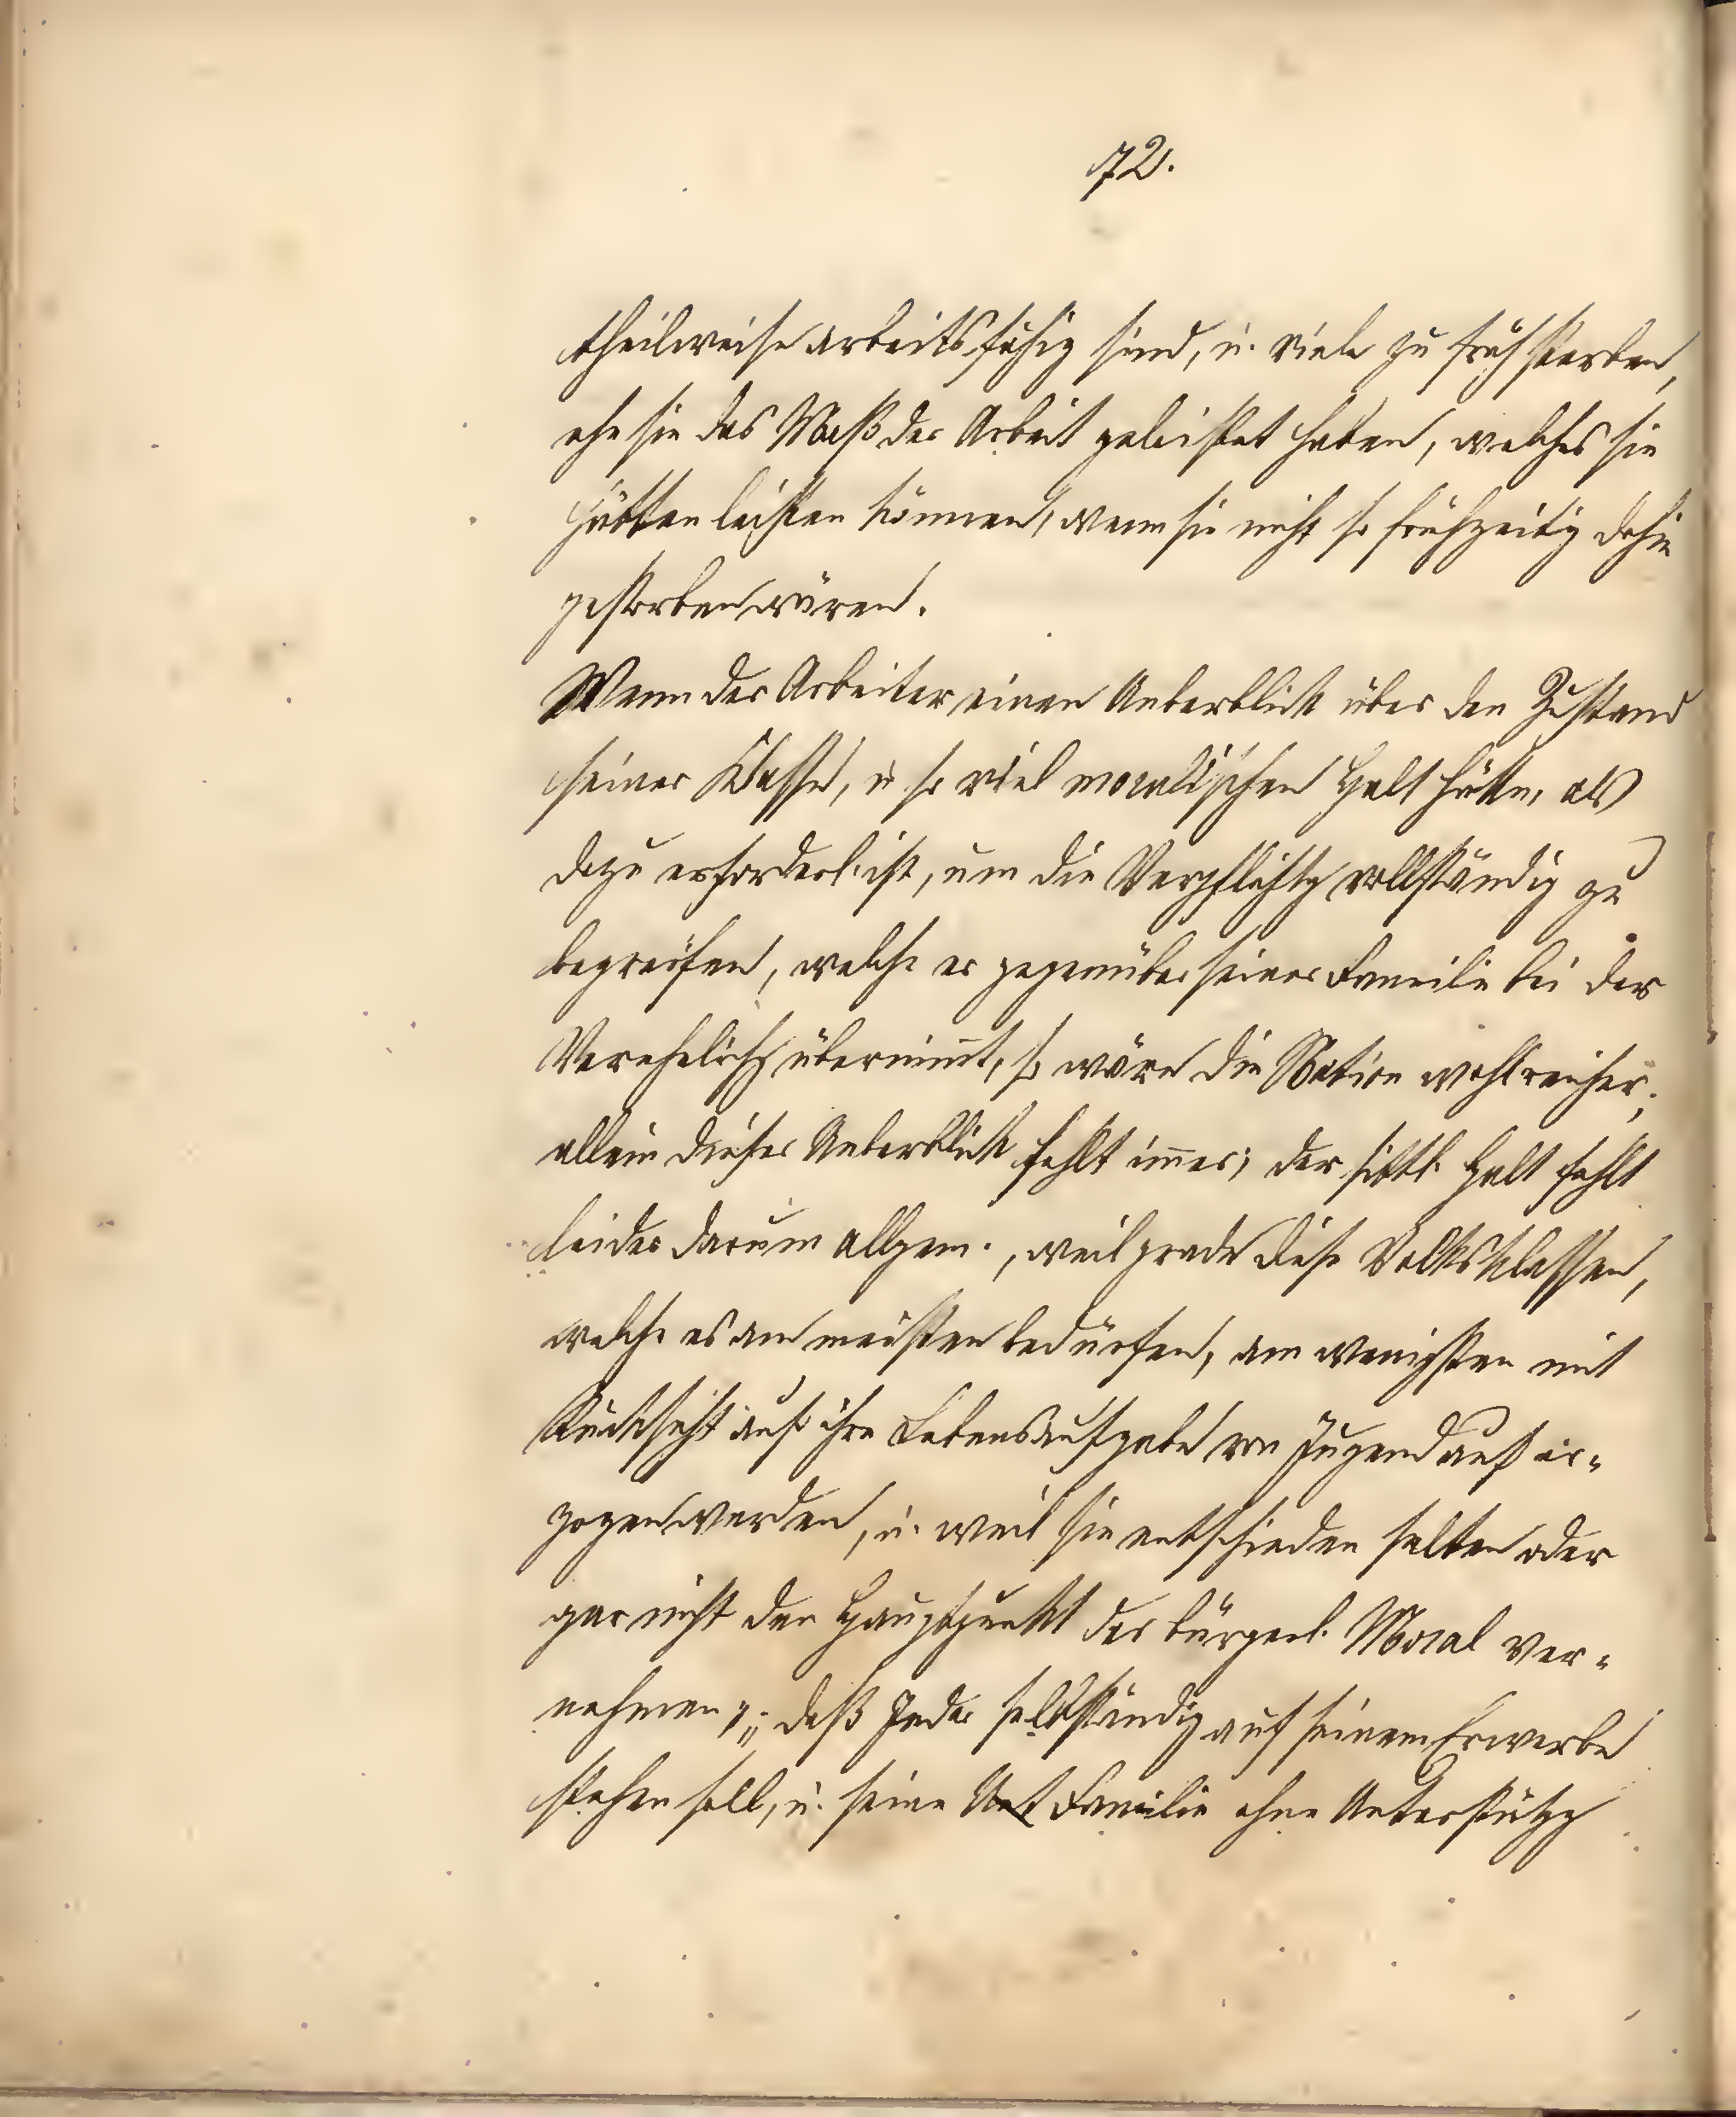 72.
theilweise arbeitsfähig sind, u. viele zu früh sterben,
ehe sie das Maß der Arbeit geleistet haben, welches sie
hätten leisten können, wenn sie nicht so frühzeitig dahin
gestorben wären.
Wenn der Arbeiter einen Ueberblick über den Zustand
seiner Klasse, u. so viel moralischen Halt hätte, als
dazu erforderl. ist, um die Verpflichtg vollständig zu
begreifen, welche er gegenüber seiner Familie bei der
Verehelichg übernimt, so wäre die Nation wohl reicher;
allein dieser Ueberblick fehlt imer; der sittl. Halt fehlt
leider darum allgem., weil grade diese Volksklassen,
welche es am meisten bedürfen, am wenigsten mit
Rücksicht auf ihre Lebensaufgabe von Jugend auf er-
zogen werden, u. weil sie entschieden selten oder
gar nicht den Hauptpunkt der bürgerl. Moral ver-
nehmen: daß Jeder selbständig auf seinem Erwerbe
stehen soll, u. seine Unt Familie ohne Unterstützg